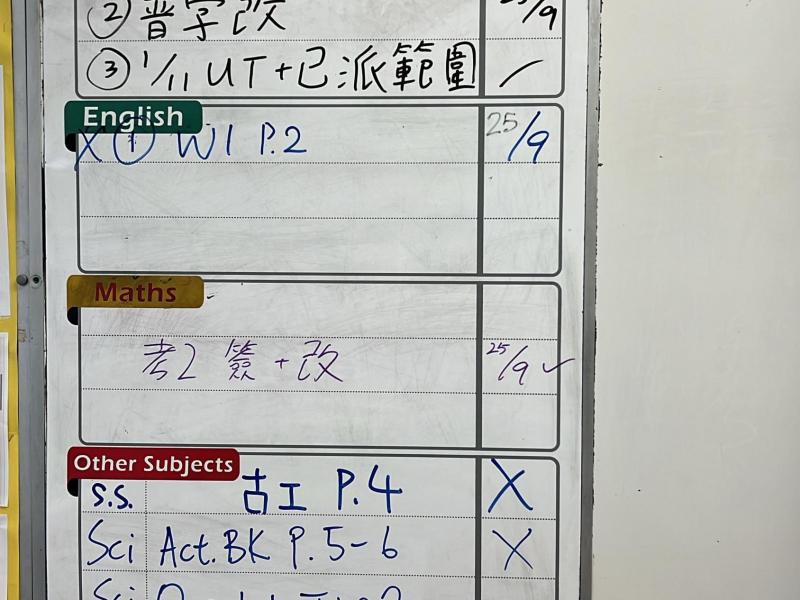 ② 普字改 25/9
③ 1/11 UT+已派範圍 /
English
X ① W1 P.2 25/9
Maths
考2 簽+改 25/9 ✓
Other Subjects
S.S. 古工 P.4 X
Sci Act.BK P.5-6 X
Sci